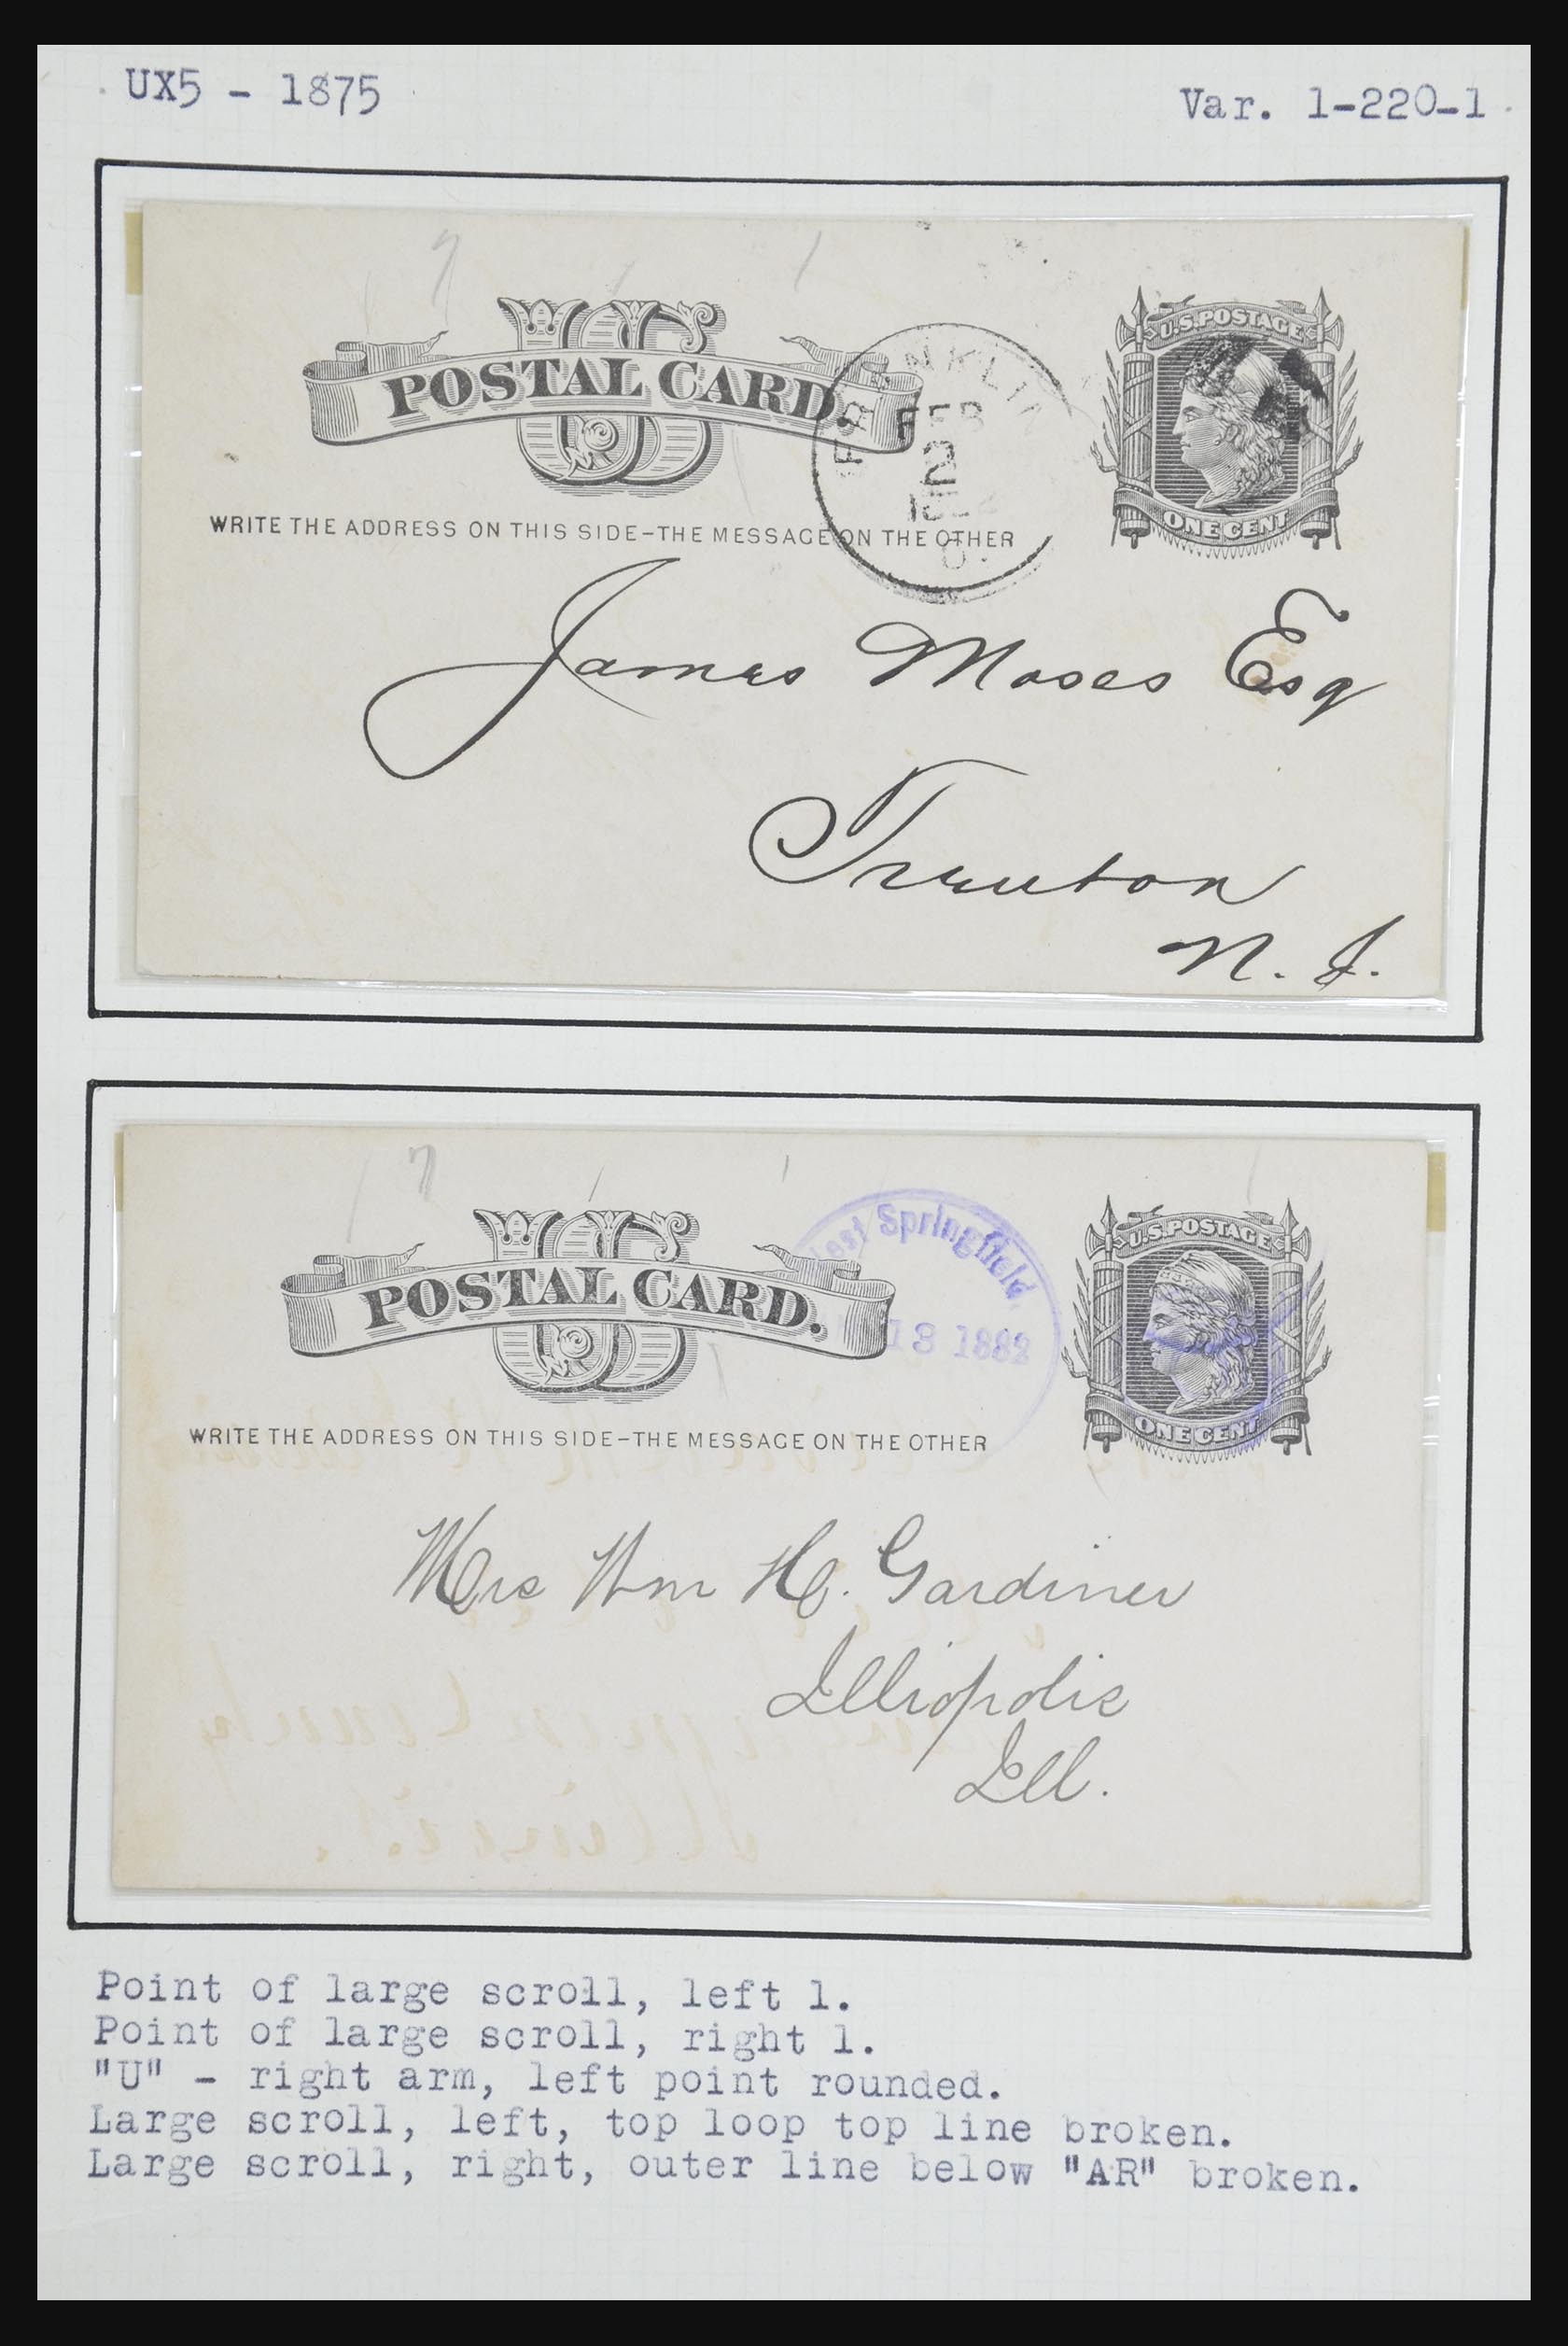 UX5 - 1875
Var. 1-220-1
7 1
US
POSTAL CARD.
U.S. POSTAGE
ONE CENT
FRANKLIN
FEB
WRITE THE ADDRESS ON THIS SIDE-THE MESSAGE ON THE OTHER
James Moses Esq
Trenton
N. J.
7 1
US
POSTAL CARD.
West Springfield,
13 1882
U.S. POSTAGE
ONE CENT
WRITE THE ADDRESS ON THIS SIDE-THE MESSAGE ON THE OTHER
Mrs Wm H. Gardiner
Illiopolis
Ill.
Point of large scroll, left 1.
Point of large scroll, right 1.
"U" - right arm, left point rounded.
Large scroll, left, top loop top line broken.
Large scroll, right, outer line below "AR" broken.